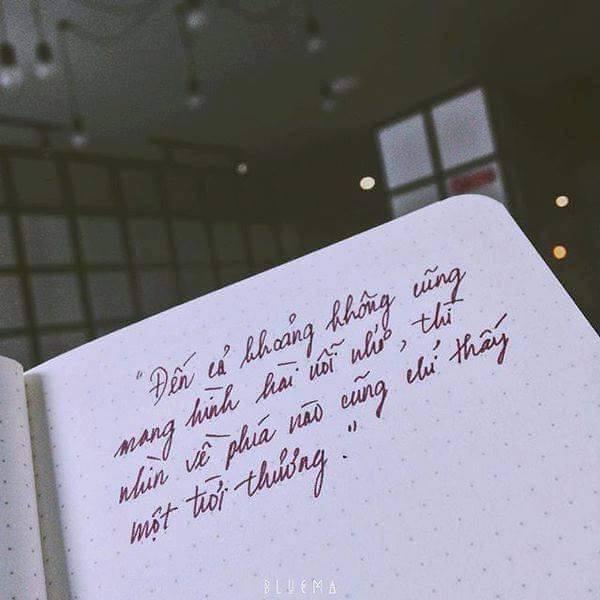 "Đến cả khoảng không cũng
mang hình hài nỗi nhớ, thì
nhìn về phía nào cũng chỉ thấy
một trời thương."
BLUEMA